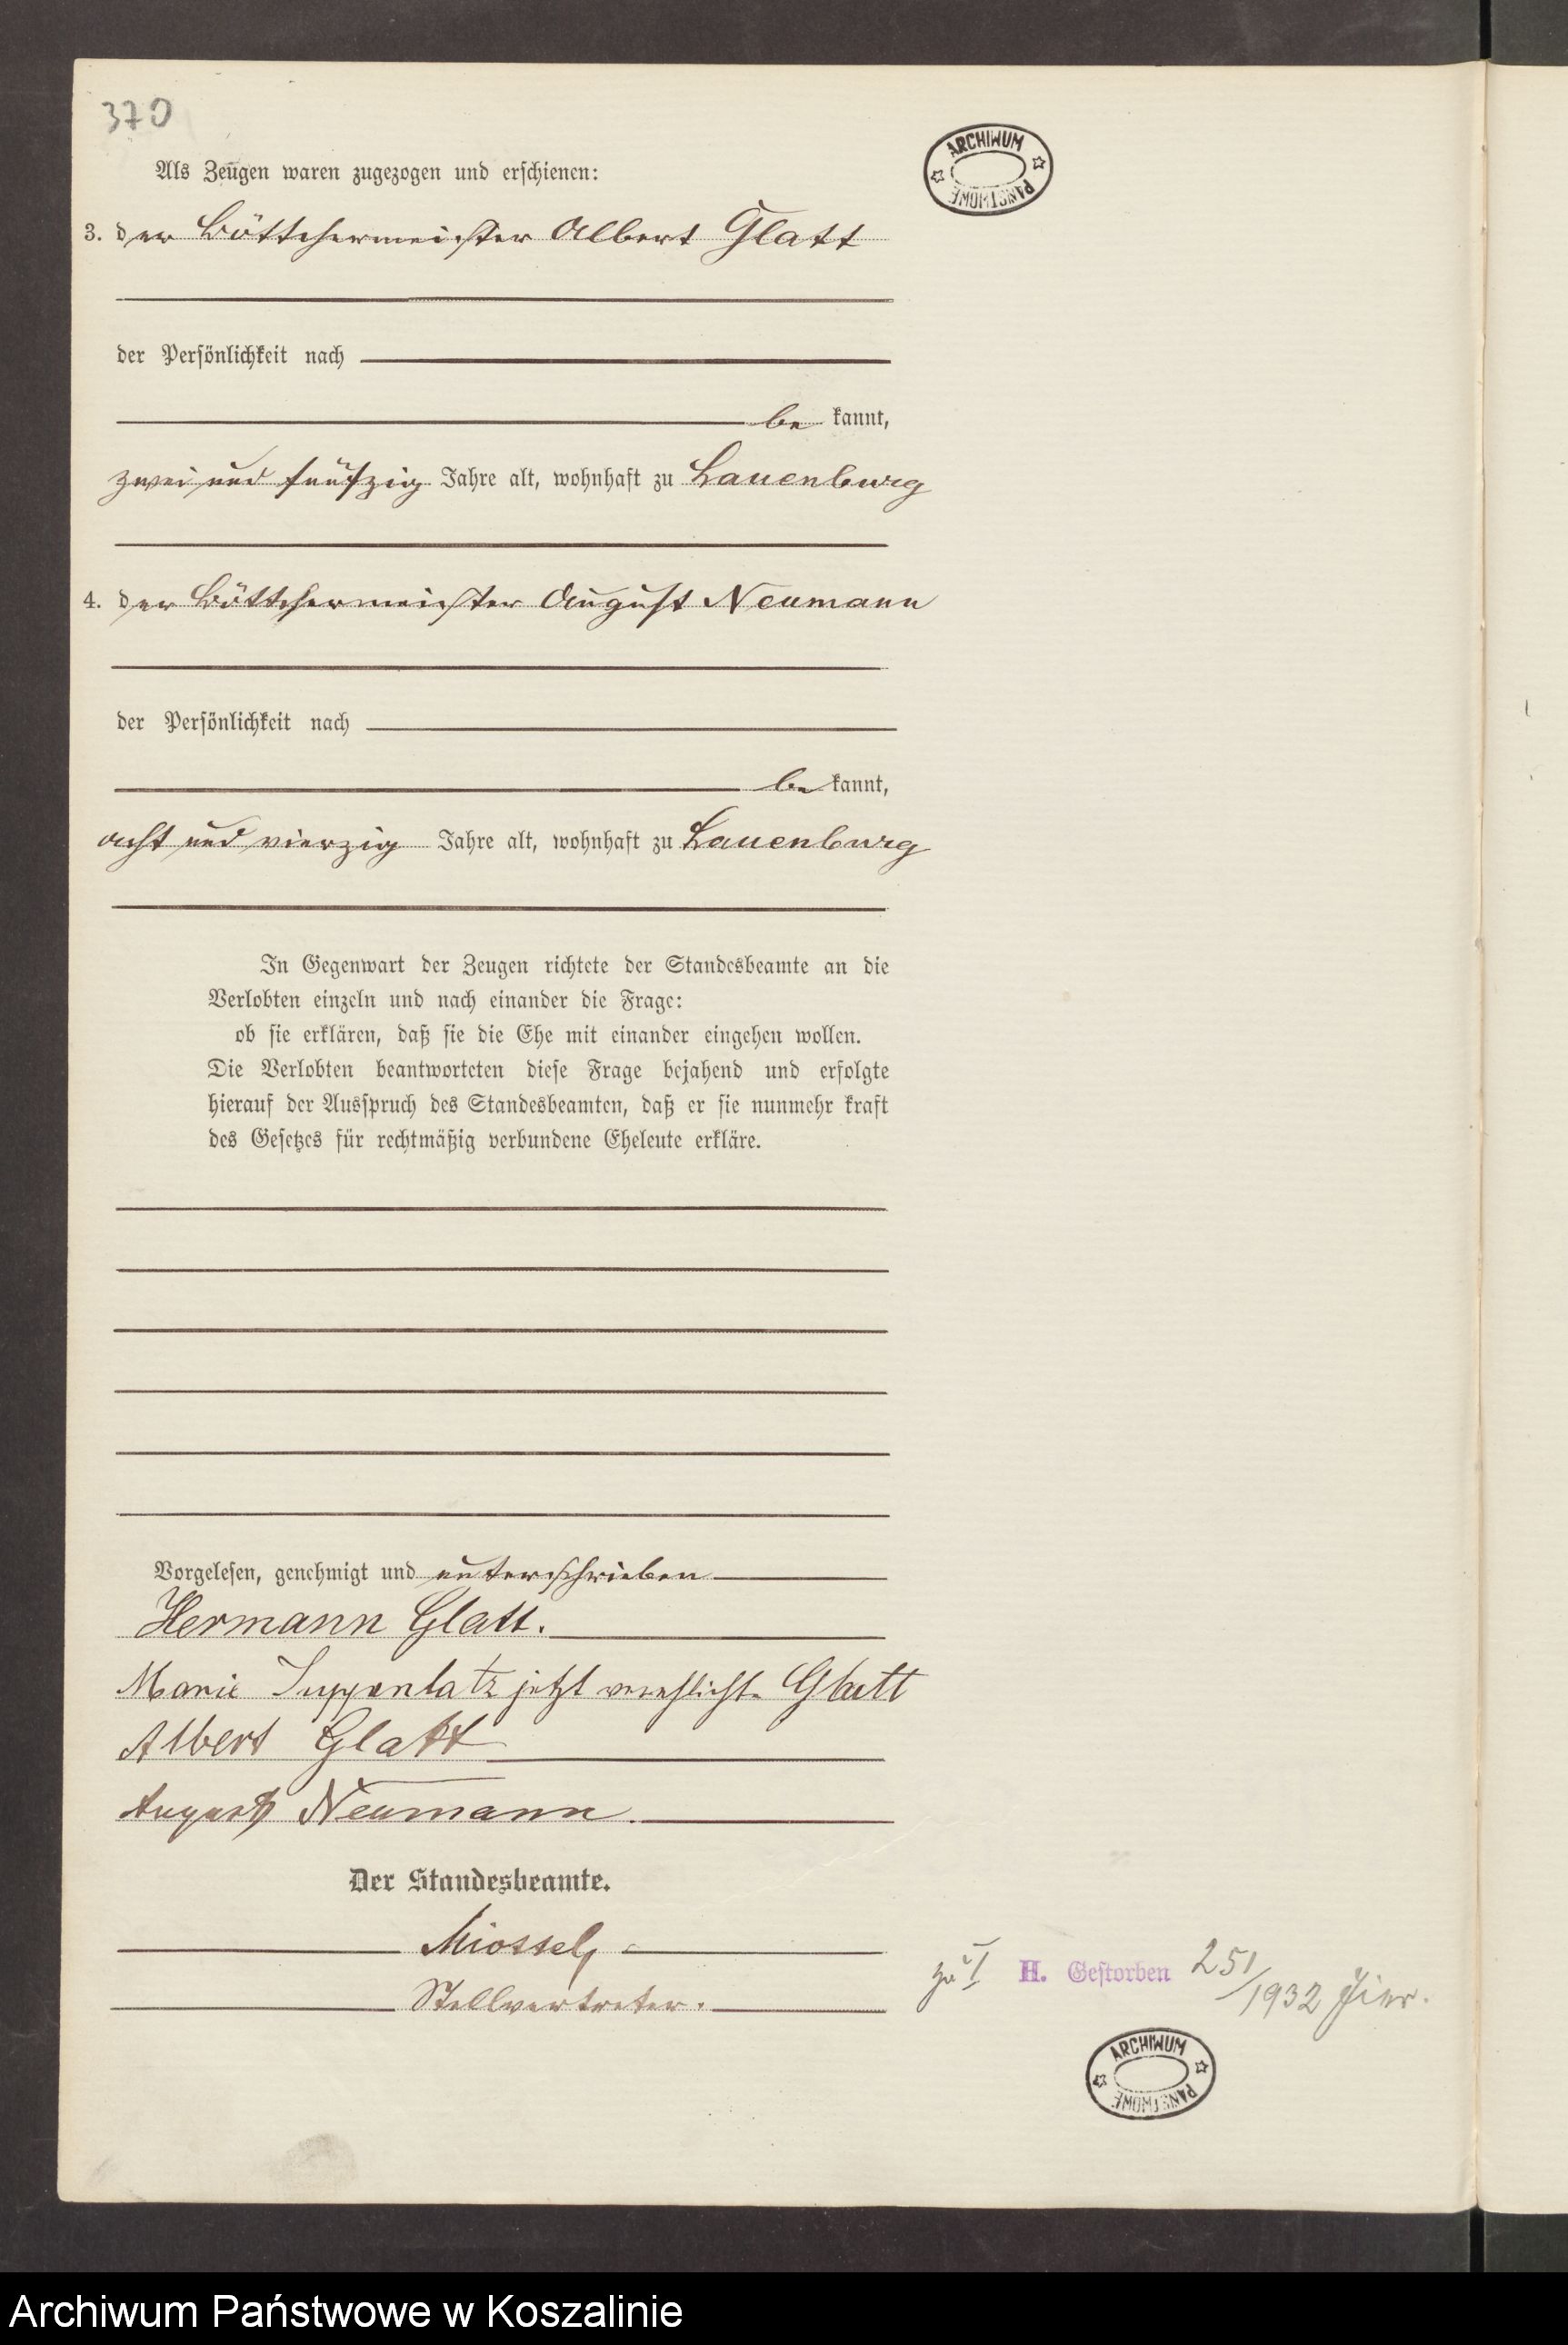 370
ARCHIWUM PAŃSTWOWE
Als Zeugen waren zugezogen und erschienen:
3. der Böttchermeister Albert Glatt
der Persönlichkeit nach
be kannt,
zwei und fünfzig Jahre alt, wohnhaft zu Lauenburg
4. der Böttchermeister August Neumann
der Persönlichkeit nach
be kannt,
acht und vierzig Jahre alt, wohnhaft zu Lauenburg
In Gegenwart der Zeugen richtete der Standesbeamte an die
Verlobten einzeln und nach einander die Frage:
ob sie erklären, daß sie die Ehe mit einander eingehen wollen.
Die Verlobten beantworteten diese Frage bejahend und erfolgte
hierauf der Ausspruch des Standesbeamten, daß er sie nunmehr kraft
des Gesetzes für rechtmäßig verbundene Eheleute erkläre.
Vorgelesen, genehmigt und unterschrieben
Hermann Glatt.
Marie jetzt verehlichte Glatt
Albert Glatt
August Neumann.
Der Standesbeamte.
Stellvertreter.
zu I H. Gestorben 251/1932 hier.
ARCHIWUM PAŃSTWOWE
Archiwum Państwowe w Koszalinie